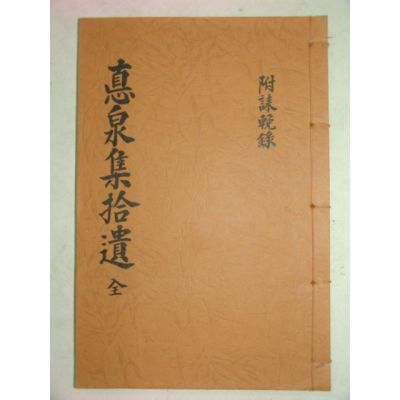 附誄輓錄
悳泉集拾遺 全